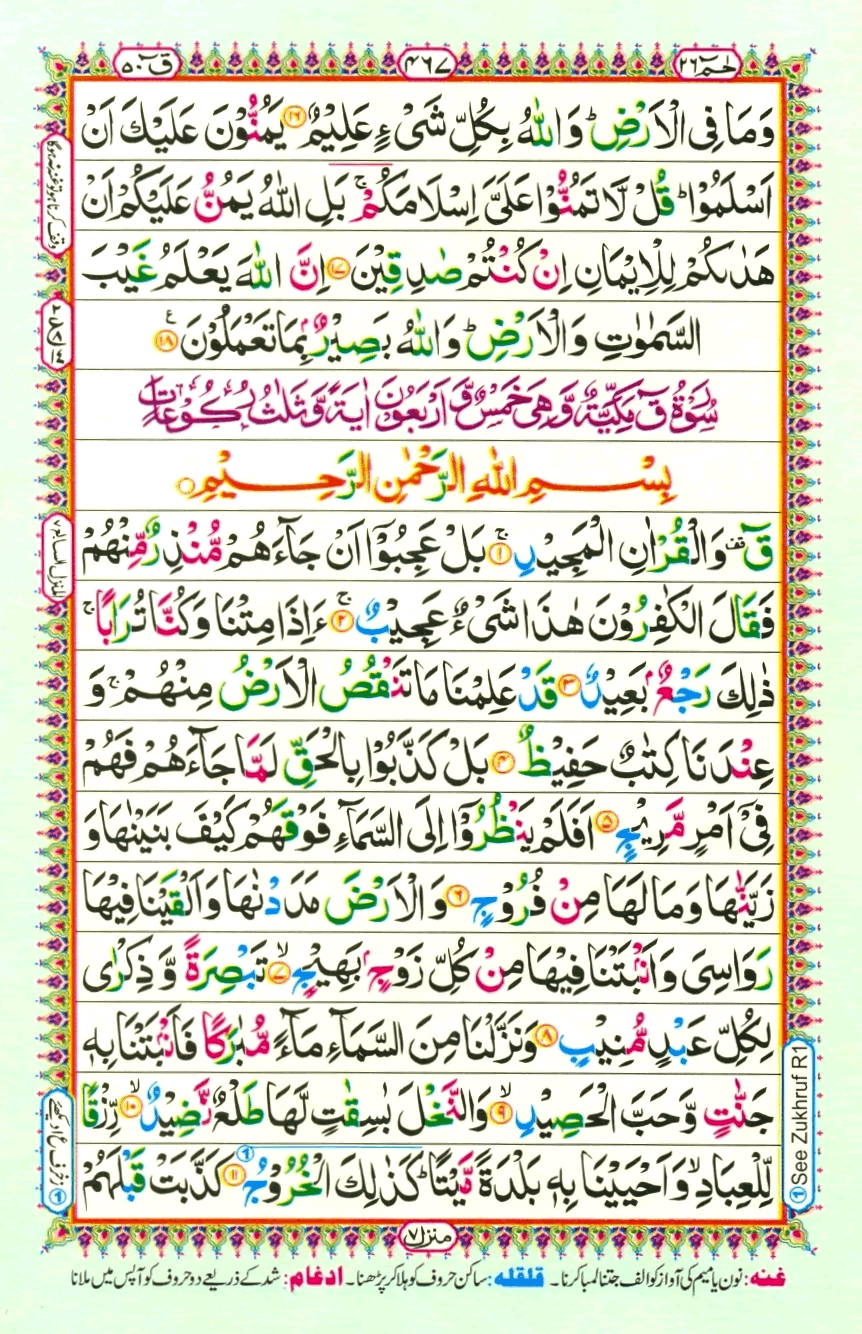 حٰمٓ ٢٦
٤٦٧
قٓ ٥٠
وَمَا فِی الْاَرْضِ ؕ وَاللّٰهُ بِكُلِّ شَیْءٍ عَلِیْمٌ ﴿۱۶﴾ یَمُنُّوْنَ عَلَیْكَ اَنْ
اَسْلَمُوْا ؕ قُلْ لَّا تَمُنُّوْا عَلَیَّ اِسْلَامَكُمْ ۚ بَلِ اللّٰهُ یَمُنُّ عَلَیْكُمْ اَنْ
هَدٰىكُمْ لِلْاِیْمَانِ اِنْ كُنْتُمْ صٰدِقِیْنَ ﴿۱۷﴾ اِنَّ اللّٰهَ یَعْلَمُ غَیْبَ
السَّمٰوٰتِ وَالْاَرْضِ ؕ وَاللّٰهُ بَصِیْرٌۢ بِمَا تَعْمَلُوْنَ ﴿۱۸﴾ ع
سُوْرَةُ قٓ مَكِّیَّةٌ وَّهِیَ خَمْسٌ وَّاَرْبَعُوْنَ اٰیَةً وَّثَلٰثُ رُكُوْعَاتٍ
بِسْمِ اللّٰهِ الرَّحْمٰنِ الرَّحِیْمِ
قٓ ۫ وَالْقُرْاٰنِ الْمَجِیْدِ ۚ﴿۱﴾ بَلْ عَجِبُوْۤا اَنْ جَآءَهُمْ مُّنْذِرٌ مِّنْهُمْ
فَقَالَ الْكٰفِرُوْنَ هٰذَا شَیْءٌ عَجِیْبٌ ۚ﴿۲﴾ ءَاِذَا مِتْنَا وَكُنَّا تُرَابًا ۚ
ذٰلِكَ رَجْعٌۢ بَعِیْدٌ ﴿۳﴾ قَدْ عَلِمْنَا مَا تَنْقُصُ الْاَرْضُ مِنْهُمْ ۚ وَ
عِنْدَنَا كِتٰبٌ حَفِیْظٌ ﴿۴﴾ بَلْ كَذَّبُوْا بِالْحَقِّ لَمَّا جَآءَهُمْ فَهُمْ
فِیْۤ اَمْرٍ مَّرِیْجٍ ﴿۵﴾ اَفَلَمْ یَنْظُرُوْۤا اِلَی السَّمَآءِ فَوْقَهُمْ كَیْفَ بَنَیْنٰهَا وَ
زَیَّنّٰهَا وَمَا لَهَا مِنْ فُرُوْجٍ ﴿۶﴾ وَالْاَرْضَ مَدَدْنٰهَا وَاَلْقَیْنَا فِیْهَا
رَوَاسِیَ وَاَنْۢبَتْنَا فِیْهَا مِنْ كُلِّ زَوْجٍۭ بَهِیْجٍ ۙ﴿۷﴾ تَبْصِرَةً وَّ ذِكْرٰی
لِكُلِّ عَبْدٍ مُّنِیْبٍ ﴿۸﴾ وَنَزَّلْنَا مِنَ السَّمَآءِ مَآءً مُّبٰرَكًا فَاَنْۢبَتْنَا بِهٖ
جَنّٰتٍ وَّحَبَّ الْحَصِیْدِ ۙ﴿۹﴾ وَالنَّخْلَ بٰسِقٰتٍ لَّهَا طَلْعٌ نَّضِیْدٌ ۙ﴿۱۰﴾ رِّزْقًا
لِّلْعِبَادِ ۙ وَاَحْیَیْنَا بِهٖ بَلْدَةً مَّیْتًا ؕ كَذٰلِكَ الْخُرُوْجُ ﴿۱۱﴾ كَذَّبَتْ قَبْلَهُمْ
① See Zukhruf R1
منزل ٧
غنہ: نون یا میم کی آواز کو الف جتنا لمبا کرنا۔ قلقلہ: ساکن حروف کو ہلا کر پڑھنا۔ ادغام: شد کے ذریعے دو حروف کو آپس میں ملانا